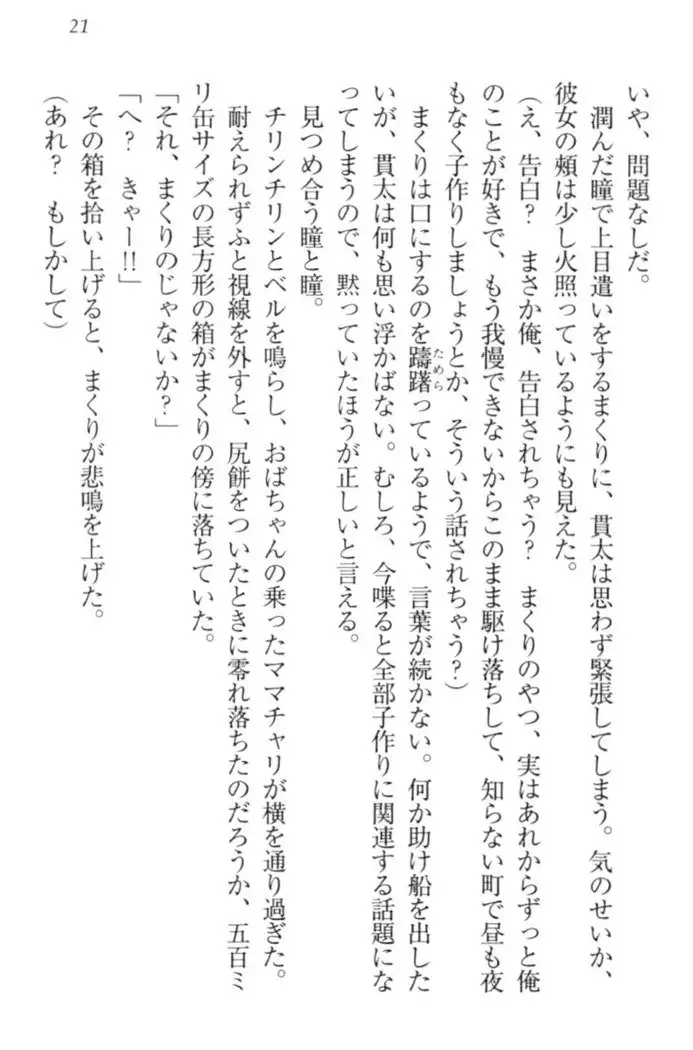 21
いや、問題なしだ。
潤んだ瞳で上目遣いをするまくりに、貫太は思わず緊張してしまう。気のせいか、
彼女の頰は少し火照っているようにも見えた。
(え、告白? まさか俺、告白されちゃう? まくりのやつ、実はあれからずっと俺
のことが好きで、もう我慢できないからこのまま駆け落ちして、知らない町で昼も夜
もなく子作りしましょうとか、そういう話されちゃう?)
まくりは口にするのを躊躇っているようで、言葉が続かない。何か助け船を出した
ためら
いが、貫太は何も思い浮かばない。むしろ、今喋ると全部子作りに関連する話題にな
ってしまうので、黙っていたほうが正しいと言える。
見つめ合う瞳と瞳。
チリンチリンとベルを鳴らし、おばちゃんの乗ったママチャリが横を通り過ぎた。
耐えられずふと視線を外すと、尻餅をついたときに零れ落ちたのだろうか、五百ミ
リ缶サイズの長方形の箱がまくりの傍に落ちていた。
「それ、まくりのじゃないか?」
「へ? きゃー!!」
その箱を拾い上げると、まくりが悲鳴を上げた。
(あれ? もしかして)